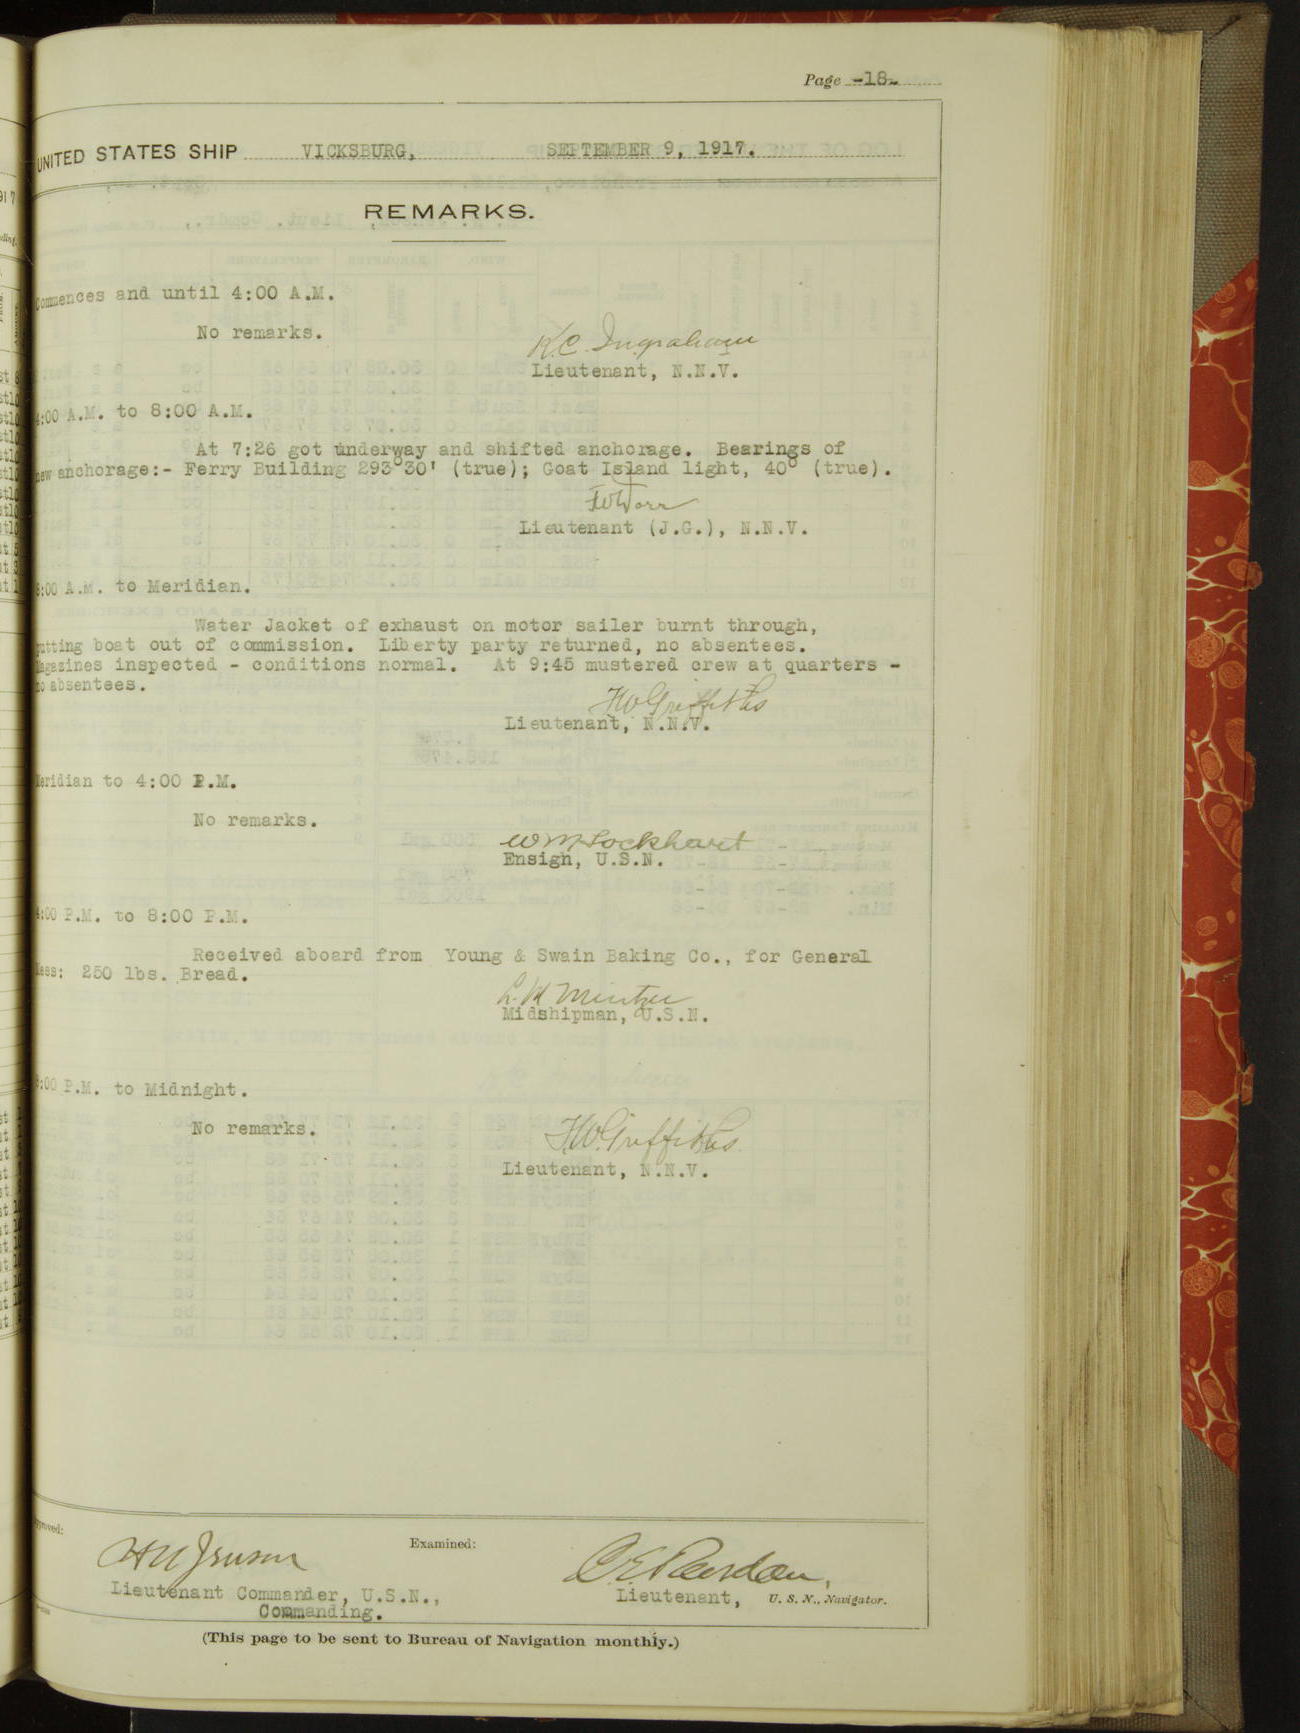 Page -18-
UNITED STATES SHIP VICKSBURG, SEPTEMBER 9, 1917.
REMARKS.
Commences and until 4:00 A.M.
No remarks.
K.C. Ingraham
Lieutenant, N.N.V.
4:00 A.M. to 8:00 A.M.
At 7:26 got underway and shifted anchorage. Bearings of
new anchorage:- Ferry Building 293°30' (true); Goat Island light, 40° (true).
Lieutenant (J.G.), N.N.V.
8:00 A.M. to Meridian.
Water Jacket of exhaust on motor sailer burnt through,
putting boat out of commission. Liberty party returned, no absentees.
Magazines inspected - conditions normal. At 9:45 mustered crew at quarters -
no absentees.
F.W. Griffiths
Lieutenant, N.N.V.
Meridian to 4:00 P.M.
No remarks.
W M Lockhart
Ensign, U.S.N.
4:00 P.M. to 8:00 P.M.
Received aboard from Young & Swain Baking Co., for General
Mess: 250 lbs. Bread.
Midshipman, U.S.N.
8:00 P.M. to Midnight.
No remarks.
F.W. Griffiths
Lieutenant, N.N.V.
Approved:
Examined:
Lieutenant Commander, U.S.N.,
Commanding.
Lieutenant, U. S. N., Navigator.
(This page to be sent to Bureau of Navigation monthly.)